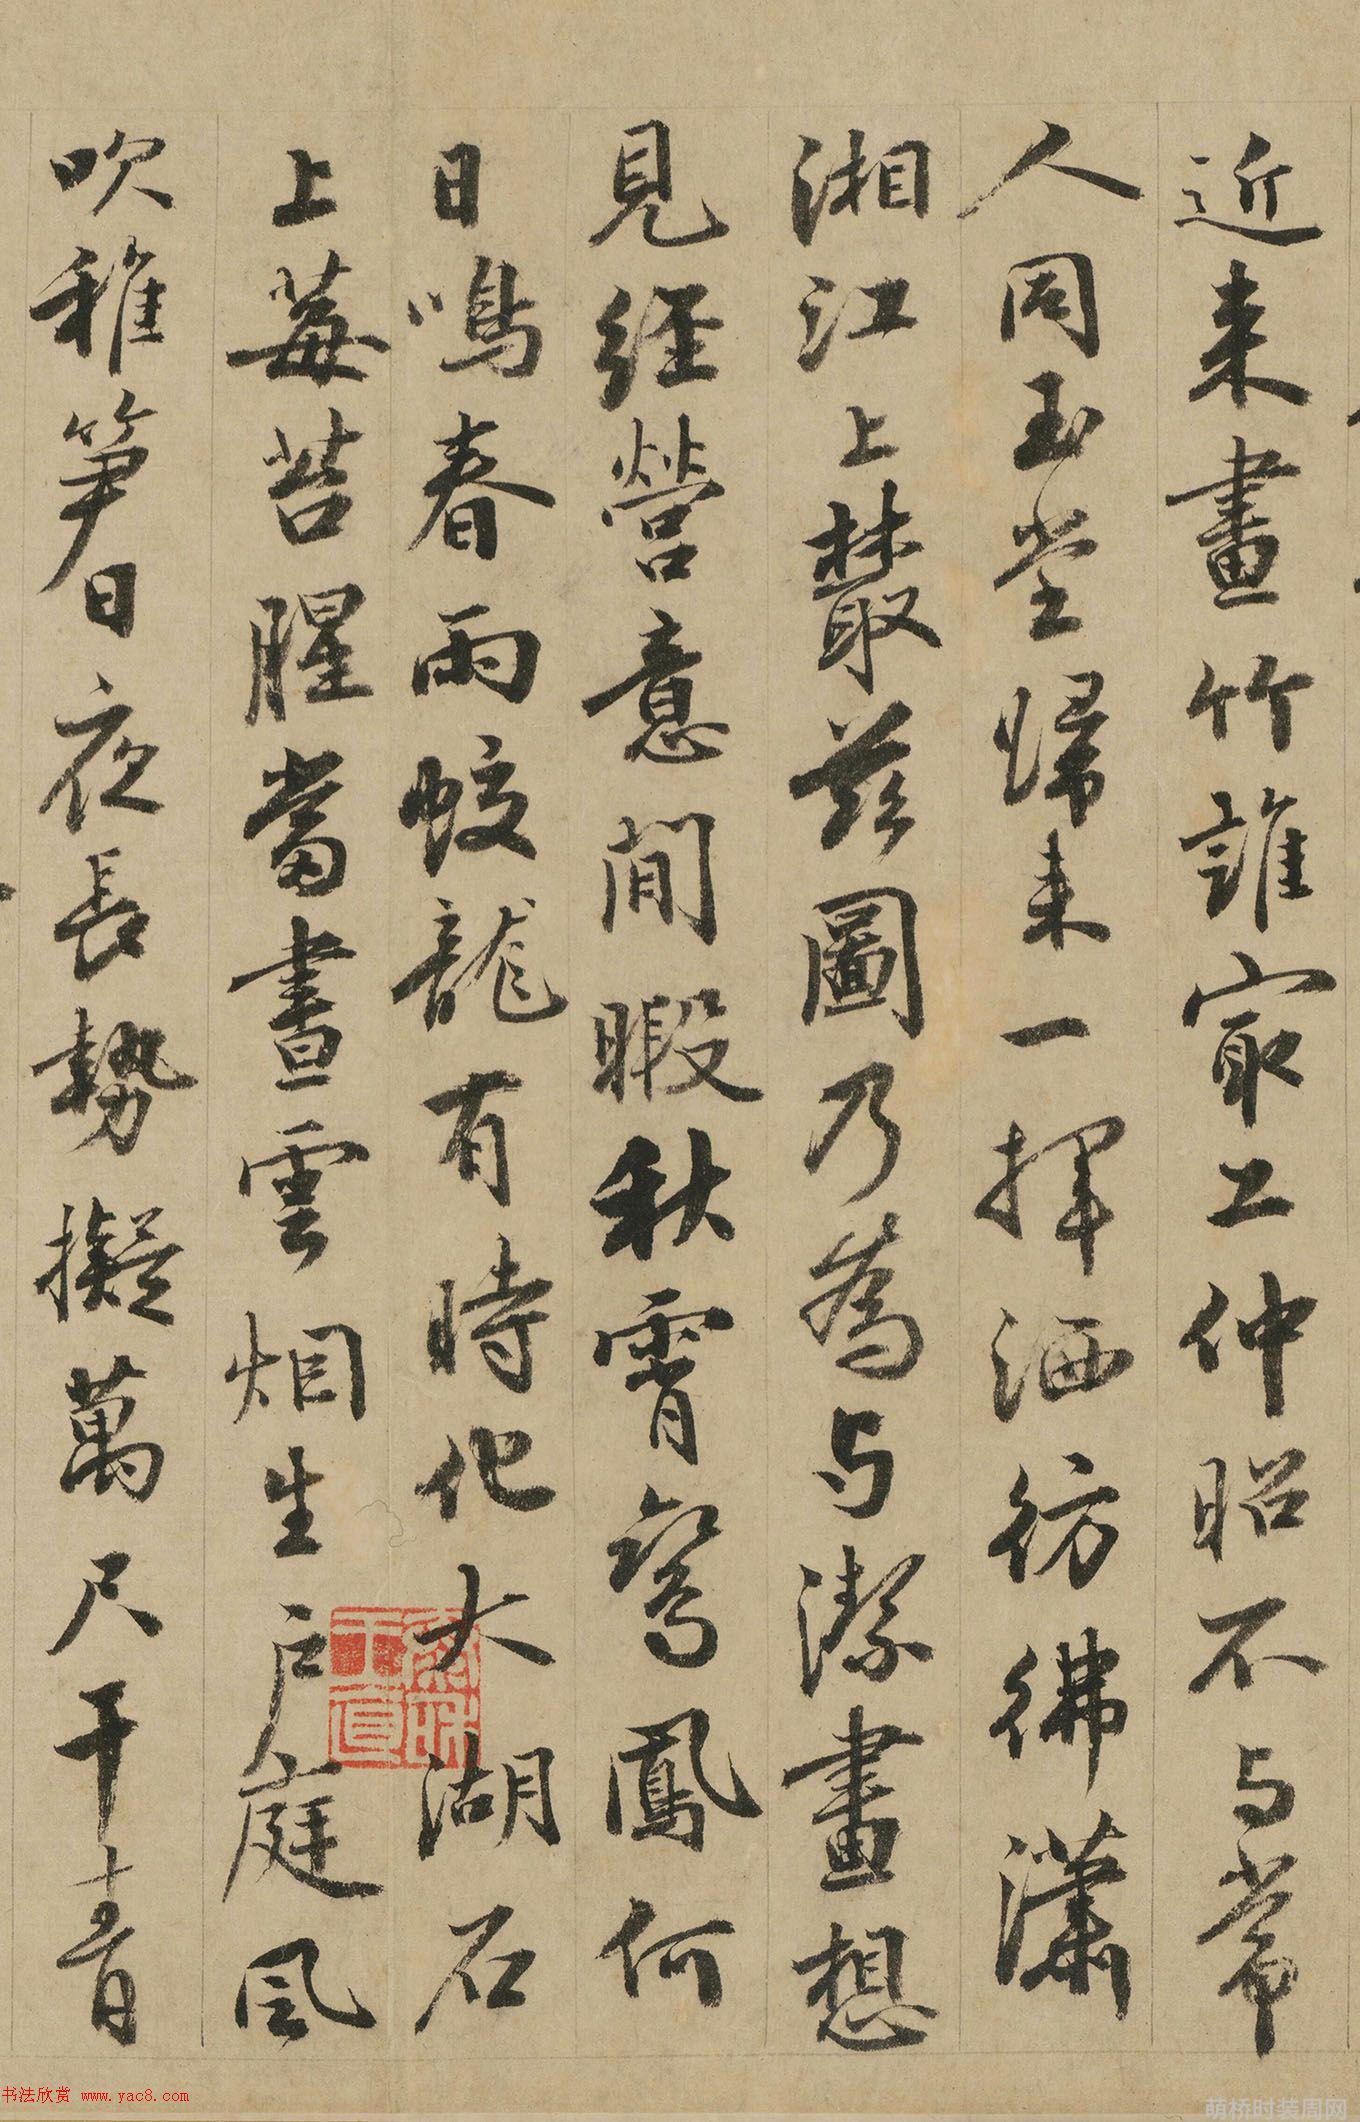 近来畫竹誰家冣工仲昭不与常
人同玉堂歸来一揮洒彷彿瀟
湘江上叢兹圖乃為与潔畫想
見經營意閒暇秋霄鸞鳳何
日鳴春雨蛟龍有時化大湖石
上莓苔腥當晝雲烟生户庭風
吹稚笋日夜長勢擬萬尺干青
书法欣赏 www.yac8.com
萌桥时装周网